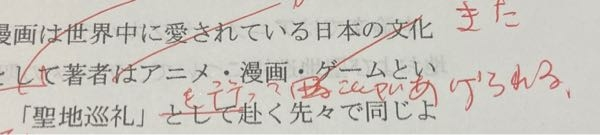 漫画は世界中に愛されている日本の文化
きた
として著者はアニメ・漫画・ゲームとい
あげられる、
「聖地巡礼」として赴く先々で同じよ